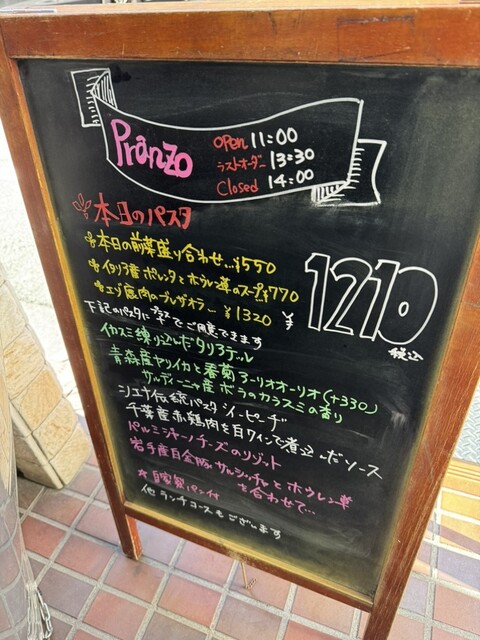 Pranzo
open 11:00
ラストオーダー 13:30
Closed 14:00
本日のパスタ
¥1210
税込
本日の前菜盛り合わせ…¥550
イタリア産 ポレンタとホウレン草のスープ¥770
エゾ鹿肉のブレザオラ…¥1320
下記のパスタに卆でご用意できます
イカスミ練り込んだタリアテッレ
青森産ヤリイカと春菊 アーリオオーリオ(+330)
サルディーニャ産 ボラのカラスミの香り
シエナ伝統パスタ "ピーチ"
千葉産赤鶏肉を白ワインで煮込んだソース
パルミジャーノチーズのリゾット
岩手産白金豚サルシッチャとホウレン草
を合わせて…
自家製パン付
他 ランチコースもございます